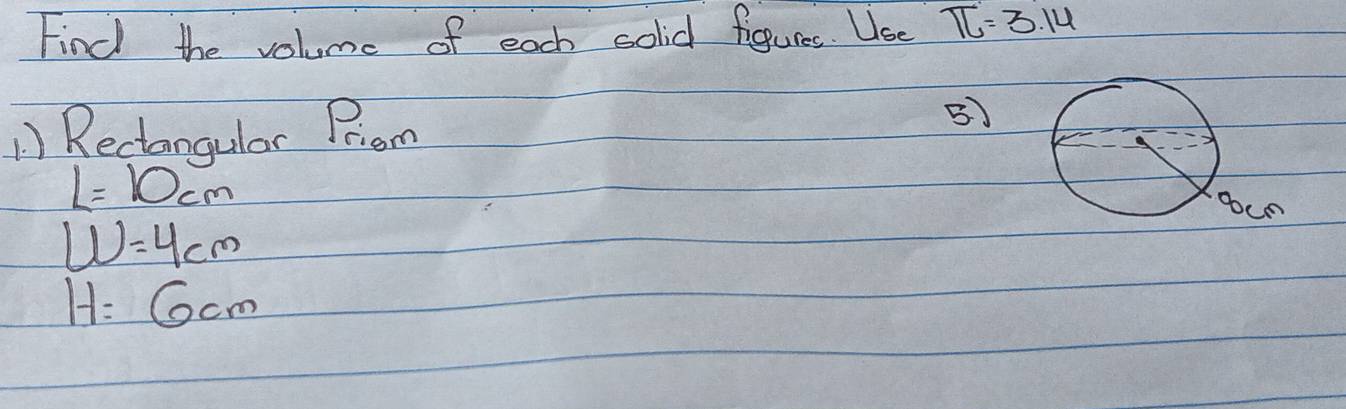 Find the volume of each solid figures. Use π=3.14
1.) Rectangular Prism
L= 10cm
W=4cm
H= 6cm
5.)
8cm